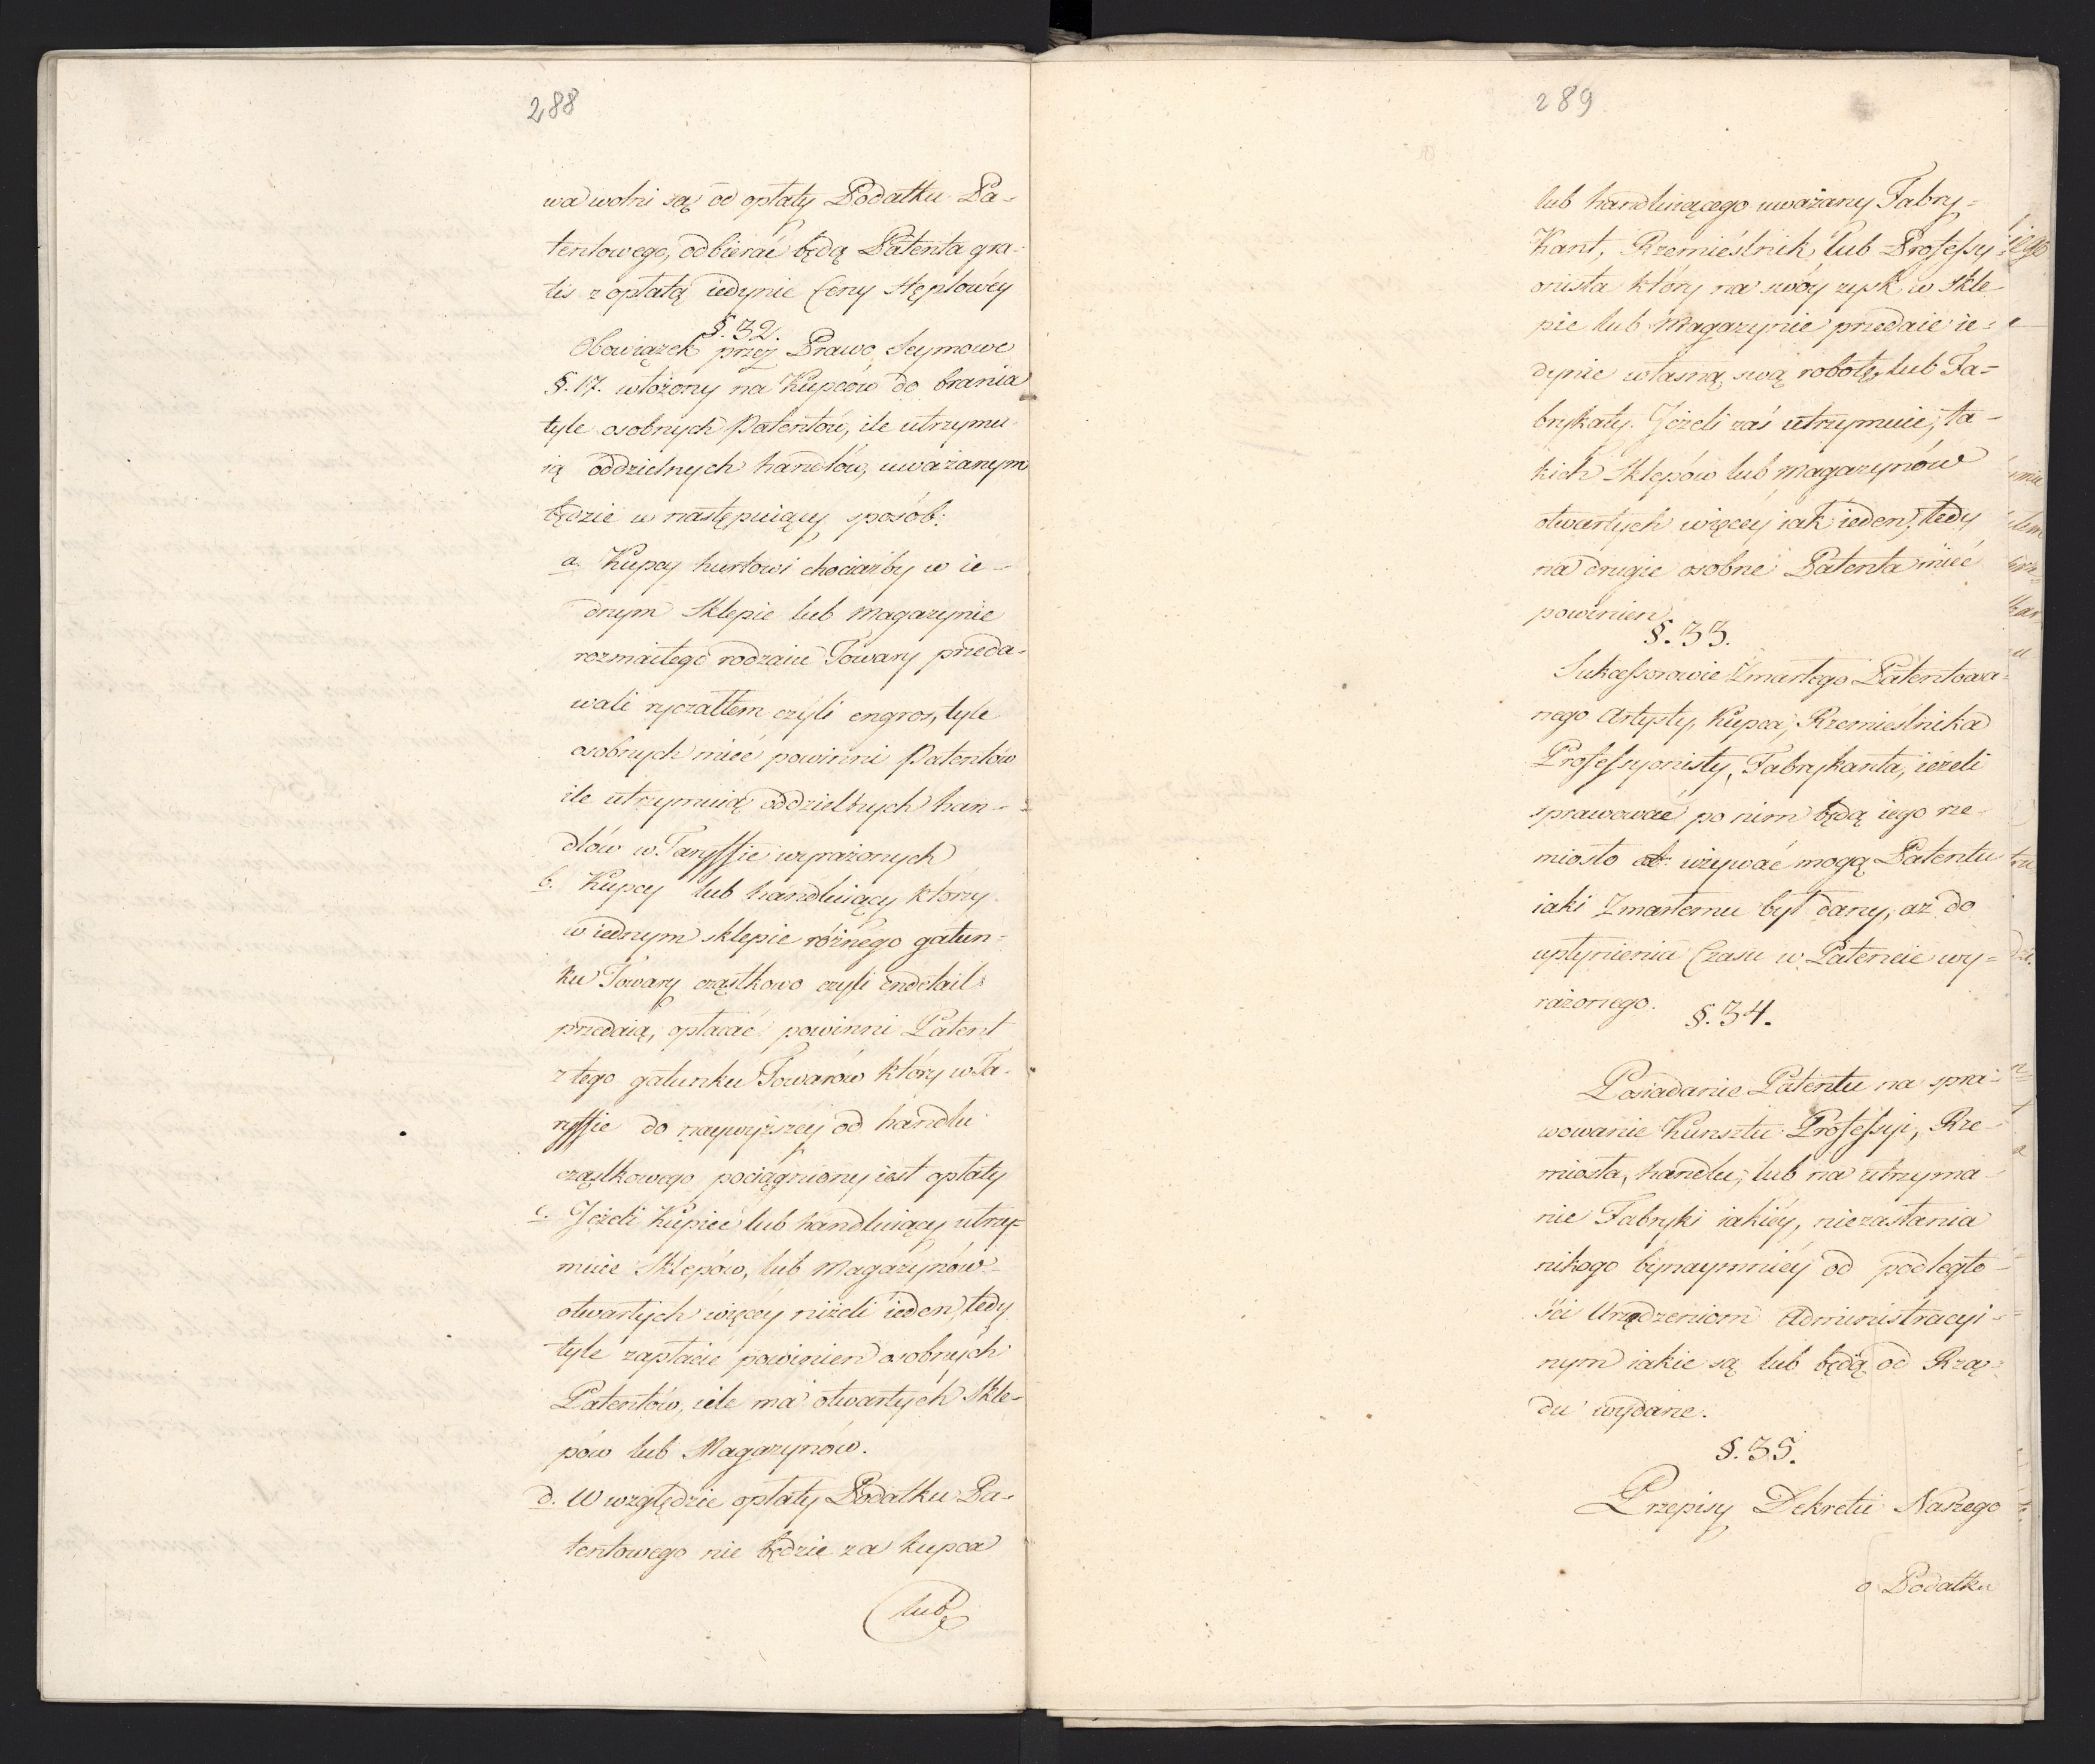 288
wa wolni są od opłaty Podatku Pa=
tentowego, odbierać będą Patenta gra-
tis z opłatą iedynie Ceny stęplowéy
§. 32.
Obowiązek przez Prawo Seymowe
§. 17. włożony na Kupców do brania
tyle osobnych Patentów, ile utrzymu
ią oddzielnych handlów, uważanym
będzie w następuiący sposób:
a. Kupcy hurtowi chociażby w ie-
dnym Sklepie lub Magazynie
rozmaitego rodzaiu Towary przeda-
wali ryczałtem czyli engros, tyle
osobnych mieć powinni Patentów
ile utrzymuią oddzielnych han-
dlów w Taryffie wyrażonych
b. Kupcy lub handluiący którzy
w iednym sklepie różnego gatun=
ku Towary cząstkowo czyli endetail
przedaią, opłacać powinni Patent
z tego gatunku Towarów który w Ta-
ryffie do naywyższey od handlu
cząstkowego pociągniony iest opłaty
c. Jeżeli Kupiec lub handluiący utrzy=
muie Sklepów, lub Magazynów
otwartych więcéy niżeli ieden, tedy
tyle zapłacić powinien osobnych
Patentów, ile ma otwartych Skle-
pów lub Magazynów.
d. W względzie opłaty Podatku Pa=
tentowego nie będzie za kupca
lub
289
lub handluiącego uważany Fabry=
kant, Rzemieślnik, lub Professy
onista który na swóy zysk w Skle-
pie lub Magazynie przedaie ie=
dynie własną swą robotę, lub Fa=
brykaty. Jeżeli zaś utrzymuie, ta-
kich Sklepów lub Magazynów
otwartych więcey iak ieden, tedy
na drugie osobne Patenta mieć
powinien.
§. 33.
Sukcessorowie Zmarłego Patentowa=
nego Artysty, Kupca, Rzemieślnika
Professyonisty, Fabrykanta, ieżeli
sprawować po nim będą iego rze-
miosło używać mogą Patentu
iaki Zmarłemu był dany, aż do
upłynienia Czasu w Patencie wy=
rażonego.
§. 34.
Posiadanie Patentu na spra-
wowanie Kunsztu Professyi, Rze-
miosła, handlu, lub na utrzyma-
nie Fabryki iakiéy, niezasłania
nikogo bynaymniéy od podległo-
ści Urządzeniom Administracyi-
nym iakie są lub będą od Rzą=
du wydane.
§. 35.
Przepisy Dekretu Naszego
o Podatku